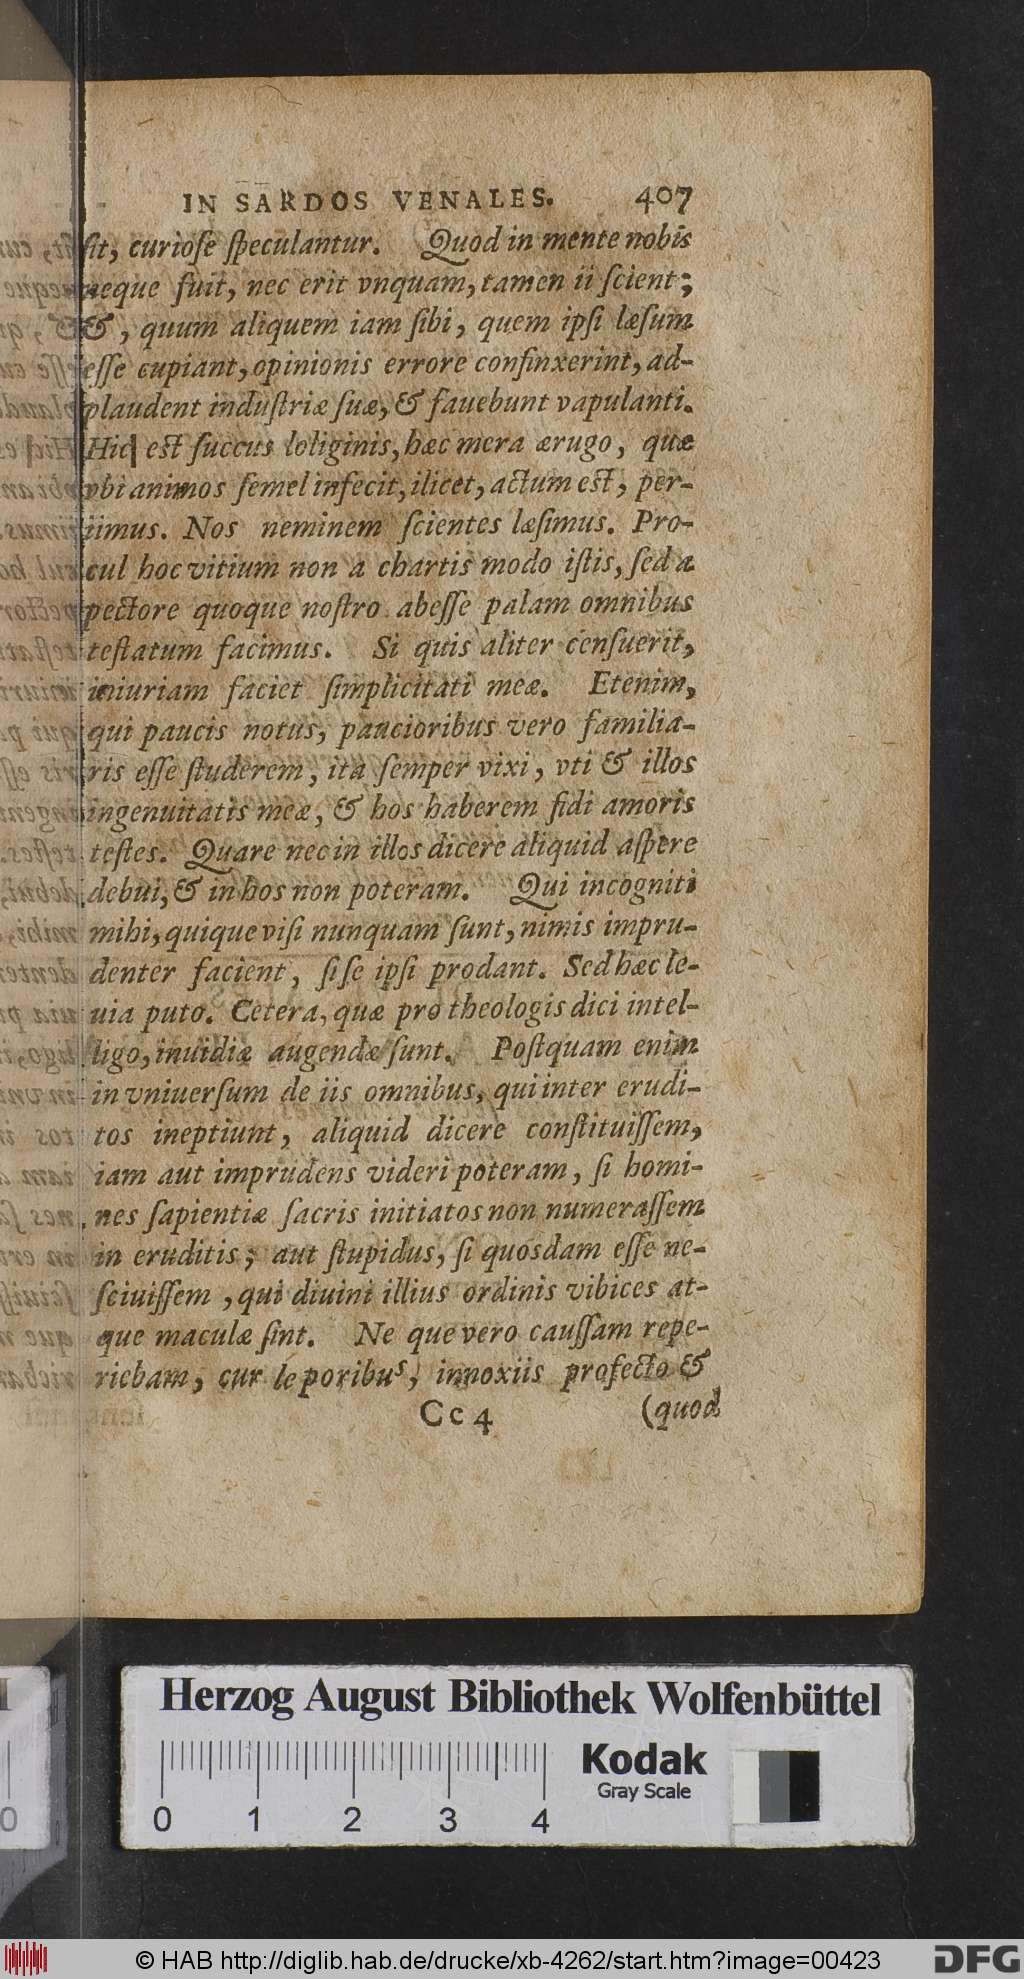 IN SARDOS VENALES. 407
ſit, curioſe ſpeculantur. Quod in mente nobis
neque fuit, nec erit vnquam, tamen ii ſcient;
&, quum aliquem iam ſibi, quem ipſi læſum
eſſe cupiant, opinionis errore confinxerint, ad-
plaudent induſtriæ ſuæ, & fauebunt vapulanti.
Hic eſt ſuccus loliginis, hæc mera ærugo, quæ
vbi animos ſemel infecit, ilicet, actum eſt, per-
iimus. Nos neminem ſcientes læſimus. Pro-
cul hoc vitium non a chartis modo iſtis, ſed a
pectore quoque noſtro abeſſe palam omnibus
teſtatum facimus. Si quis aliter cenſuerit,
iniuriam faciet ſimplicitati meæ. Etenim,
qui paucis notus, paucioribus vero familia-
ris eſſe ſtuderem, ita ſemper vixi, vti & illos
ingenuitatis meæ, & hos haberem fidi amoris
teſtes. Quare nec in illos dicere aliquid aſpere
debui, & in hos non poteram. Qui incogniti
mihi, quique viſi nunquam ſunt, nimis impru-
denter facient, ſi ſe ipſi prodant. Sed hæc le-
uia puto. Cetera, quæ pro theologis dici intel-
ligo, inuidiæ augendæ ſunt. Poſtquam enim
in vniuerſum de iis omnibus, qui inter erudi-
tos ineptiunt, aliquid dicere conſtituiſſem,
iam aut imprudens videri poteram, ſi homi-
nes ſapientiæ ſacris initiatos non numeraſſem
in eruditis; aut ſtupidus, ſi quosdam eſſe ne-
ſciuiſſem, qui diuini illius ordinis vibices at-
que maculæ ſint. Ne que vero cauſſam repe-
riebam, cur leporibus, innoxiis profecto &
Cc 4 (quod
Herzog August Bibliothek Wolfenbüttel
Kodak
Gray Scale
0 1 2 3 4
© HAB http://diglib.hab.de/drucke/xb-4262/start.htm?image=00423
DFG